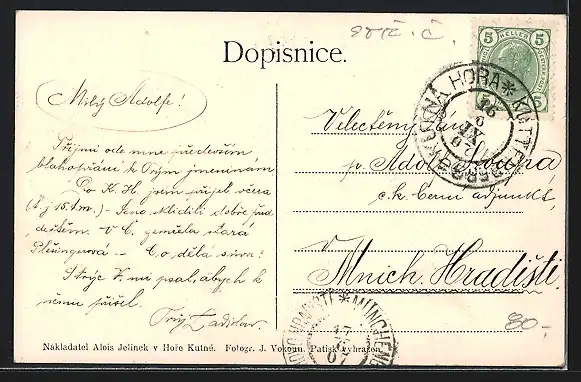 Dopisnice.
5 HELLER 5
KUTNÁ HORA * KUTTENBERG
Milý Adolfe!
Přijmi ode mne především
blahopřání k Tvým jmeninám
Do K. H. jsem přijel včera
(t. j. 15. t. m.) – Seno klidili dobře před
deštěm. V Č. zemřela stará
– Co dělá
Strýc V. mi psal, abych k
němu přišel.
Tvůj Ladislav.
Velectěný pán
p. Adolf
c. k. adjunkt,
v
Mnich. Hradišti
MÜNCHENG
80.-
Nakladatel Alois Jelínek v Hoře Kutné. Fotogr. J. Vokoun. Patisk vyhrazen.